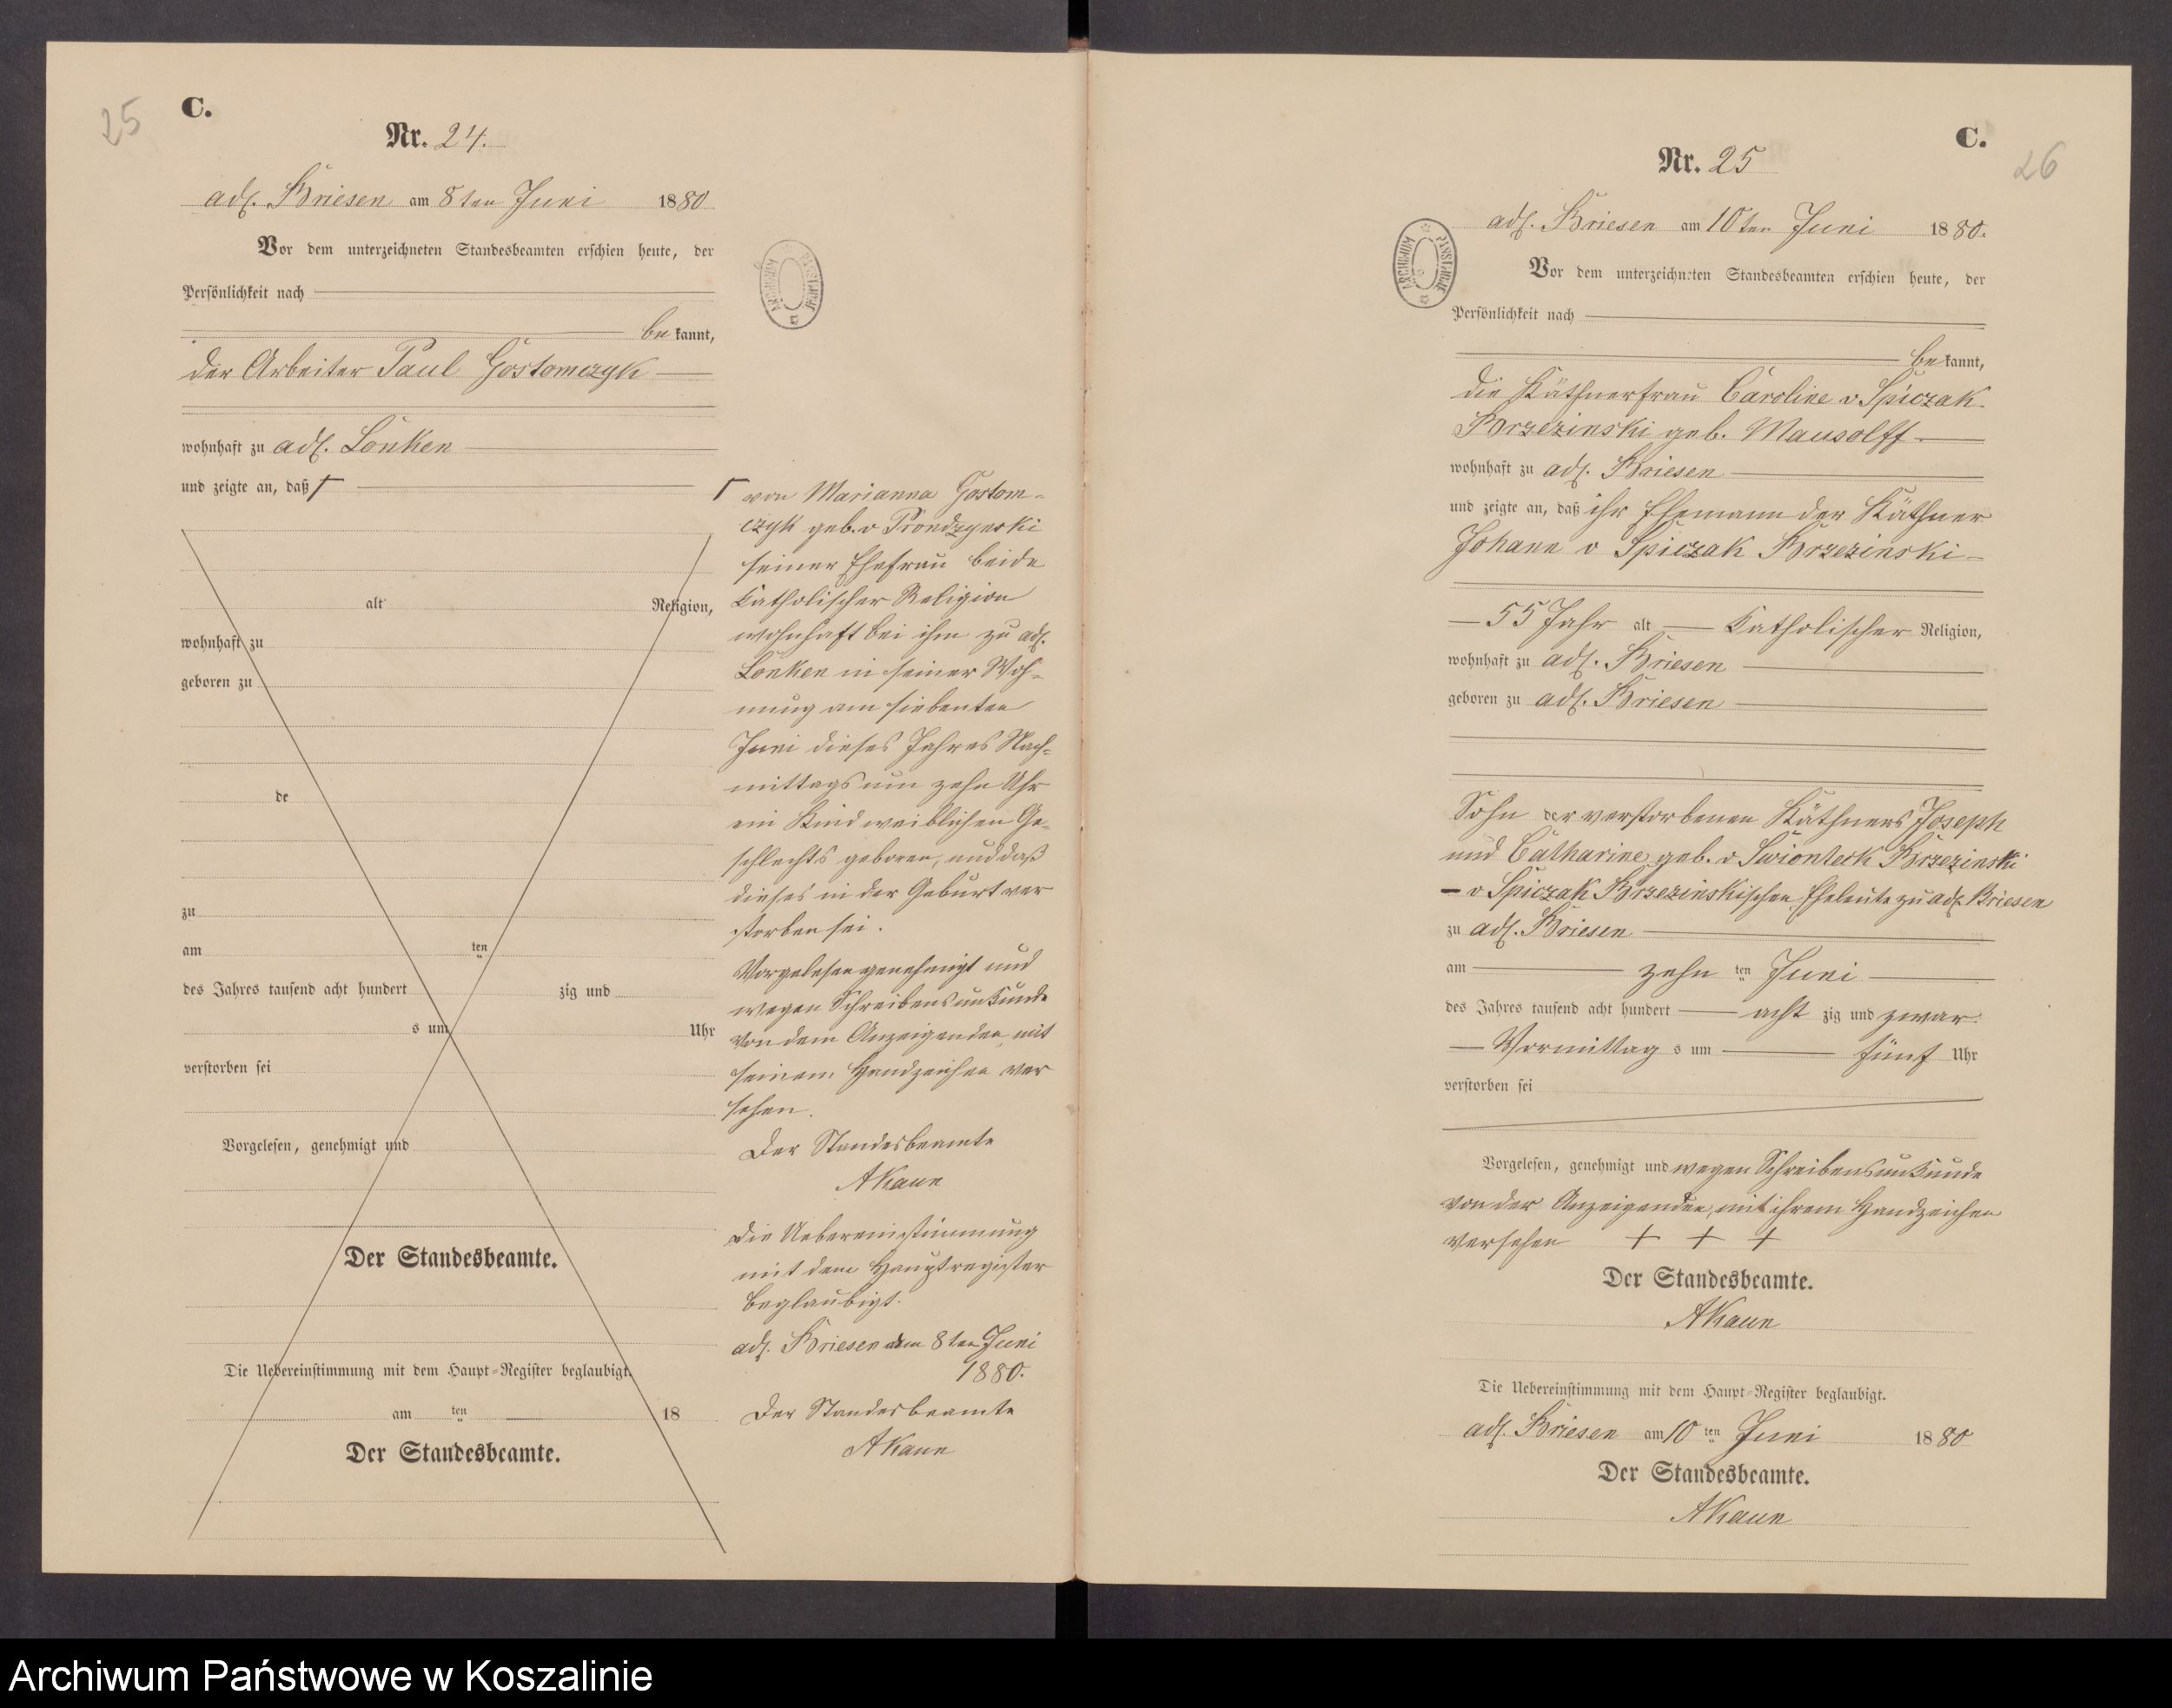 25
C.
Nr. 24.
adl. Briesen am 8ten Juni 1880
Vor dem unterzeichneten Standesbeamten erschien heute, der
Persönlichkeit nach
be kannt,
der Arbeiter Paul Gostomczyk
wohnhaft zu adl. Lonken
und zeigte an, daß
alt Religion,
wohnhaft zu
geboren zu
de
zu
am ten
des Jahres tausend acht hundert zig und
s um Uhr
verstorben sei
Vorgelesen, genehmigt und
Der Standesbeamte.
Die Uebereinstimmung mit dem Haupt-Register beglaubigt.
am ten 18
Der Standesbeamte.
von Marianna Gostom-
czyk geb. v Prondzynski
seiner Ehefrau beide
katholischer Religion
wohnhaft bei ihm zu adl.
Lonken in seiner Woh-
nung am siebenten
Juni dieses Jahres Nach-
mittags um zehn Uhr
ein Kind weiblichen Ge-
schlechts geboren, und daß
dieses in der Geburt ver
storben sei.
Vorgelesen genehmigt und
wegen Schreibensunkunde
von dem Anzeigenden mit
seinem Handzeichen ver
sehen.
Der Standesbeamte
AKaun
Die Uebereinstimmung
mit dem Hauptregister
beglaubigt.
adl. Briesen dem 8ten Juni
1880.
Der Standesbeamte
AKaun
C.
26
Nr. 25
adl. Briesen am 10ten Juni 1880.
Vor dem unterzeichneten Standesbeamten erschien heute, der
Persönlichkeit nach
be kannt,
die Käthnerfrau Caroline v Spiczak
Brzezinski geb. Mausolff
wohnhaft zu adl. Briesen
und zeigte an, daß ihr Ehemann der Käthner
Johann v Spiczak Brzezinski
55 Jahr alt katholischer Religion,
wohnhaft zu adl. Briesen
geboren zu adl. Briesen
Sohn der verstorbenen Käthners Joseph
und Catharine geb. v Swionteck Brzezinski
- v Spiczak Brzezinskischen Eheleute zu adl. Briesen
zu adl. Briesen
am zehn ten Juni
des Jahres tausend acht hundert acht zig und zwar
Vormittag s um fünf Uhr
verstorben sei
Vorgelesen, genehmigt und wegen Schreibensunkunde
von der Anzeigenden, mit ihrem Handzeichen
versehen + + +
Der Standesbeamte.
AKaun
Die Uebereinstimmung mit dem Haupt-Register beglaubigt.
adl. Briesen am 10 ten Juni 1880
Der Standesbeamte.
AKaun
Archiwum Państwowe w Koszalinie